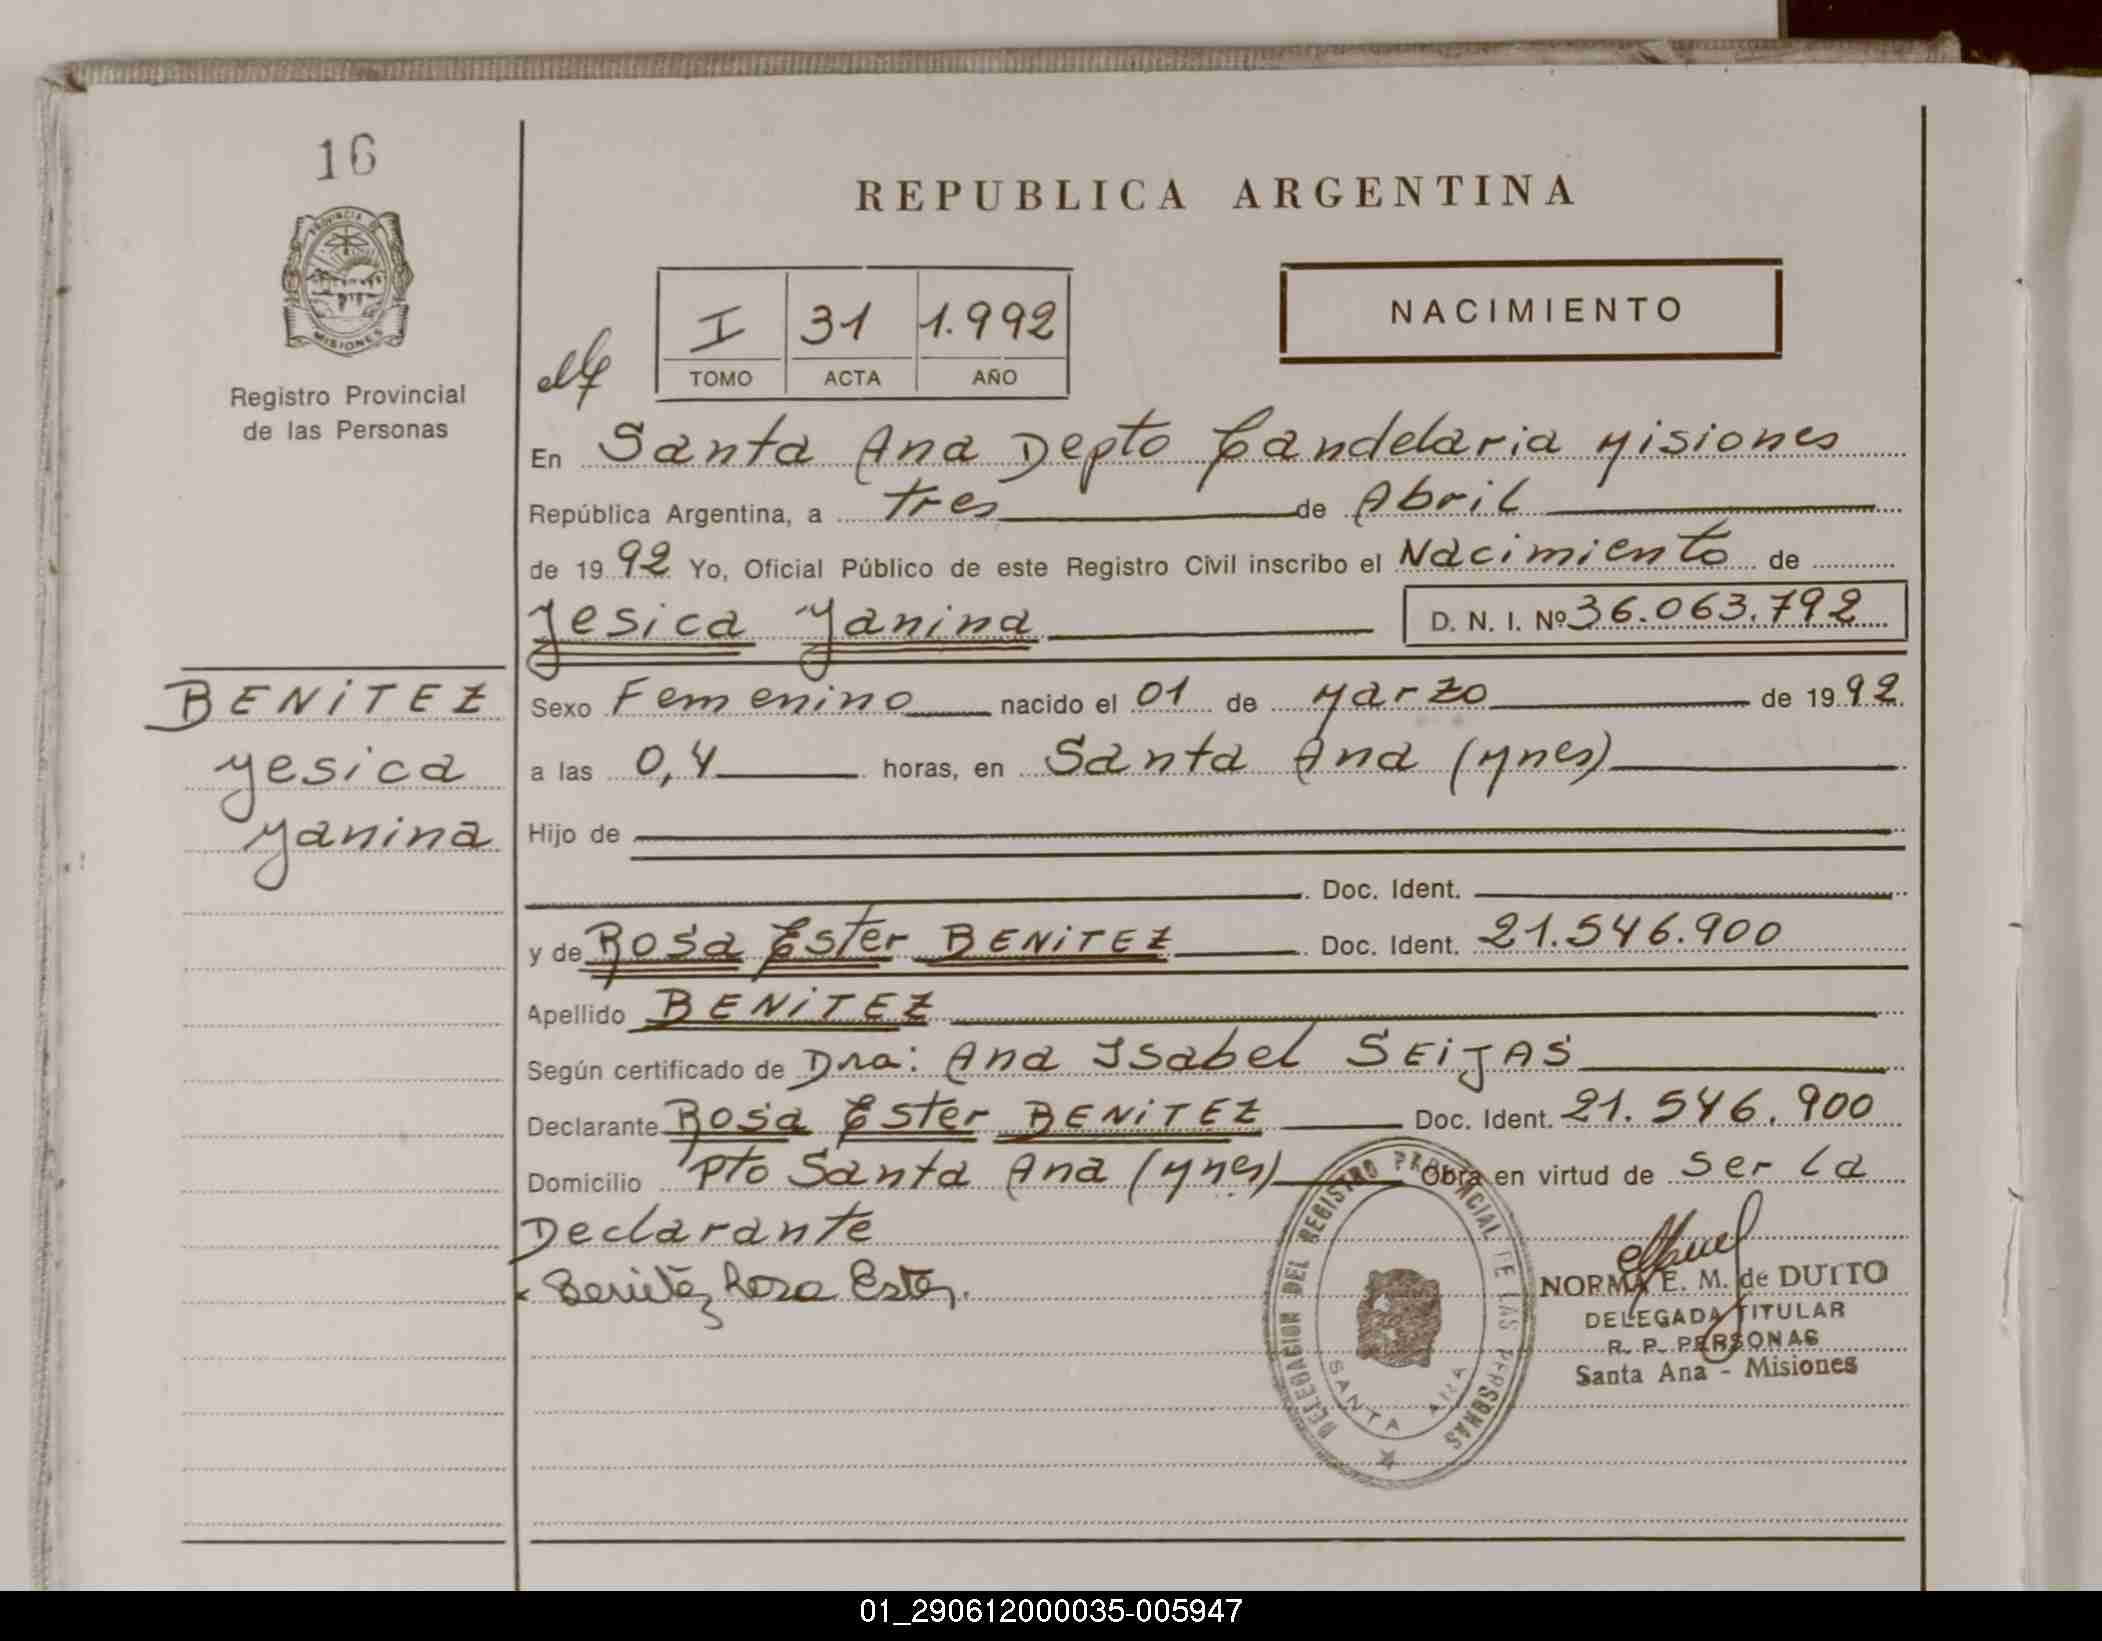 16
PROVINCIA DE
MISIONES
Registro Provincial
de las Personas
BENITEZ
Yesica
Yanina
REPUBLICA ARGENTINA
I 31 1.992
TOMO ACTA AÑO
NACIMIENTO
En Santa Ana Depto Candelaria Misiones
República Argentina, a tres de Abril
de 1992 Yo, Oficial Público de este Registro Civil inscribo el Nacimiento de
Yesica Yanina D. N. I. Nº 36.063.792
Sexo Femenino nacido el 01 de Marzo de 1992
a las 0,4 horas, en Santa Ana (Mnes)
Hijo de
Doc. Ident.
y de Rosa Ester BENITEZ Doc. Ident. 21.546.900
Apellido BENITEZ
Según certificado de Dra: Ana Isabel SEIJAS
Declarante Rosa Ester BENITEZ Doc. Ident. 21.546.900
Domicilio Pto Santa Ana (Mnes) Obra en virtud de ser la
Declarante
x Benitez Rosa Ester.
DELEGACION DEL REGISTRO PROVINCIAL DE LAS PERSONAS
SANTA ANA
NORMA E. M. de DUTTO
DELEGADA TITULAR
R. P. PERSONAS
Santa Ana - Misiones
01_290612000035-005947